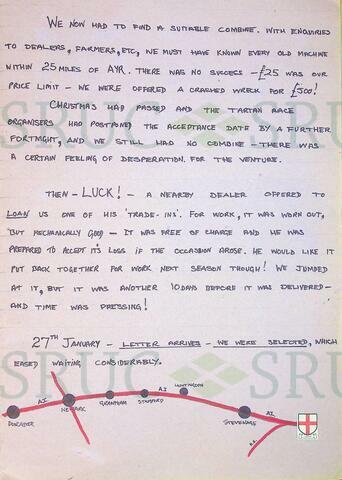 WE NOW HAD TO FIND A SUITABLE COMBINE. WITH ENQUIRIES
TO DEALERS, FARMERS, ETC, WE MUST HAVE KNOWN EVERY OLD MACHINE
WITHIN 25 MILES OF AYR. THERE WAS NO SUCCESS – £25 WAS OUR
PRICE LIMIT – WE WERE OFFERED A CRASHED WRECK FOR £500!
CHRISTMAS HAD PASSED AND THE TARTAN RACE
ORGANISERS HAD POSTPONED THE ACCEPTANCE DATE BY A FURTHER
FORTNIGHT, AND WE STILL HAD NO COMBINE – THERE WAS
A CERTAIN FEELING OF DESPERATION FOR THE VENTURE.
THEN – LUCK! – A NEARBY DEALER OFFERED TO
LOAN US ONE OF HIS 'TRADE-INS'. FOR WORK, IT WAS WORN OUT,
BUT MECHANICALLY GOOD – IT WAS FREE OF CHARGE AND HE WAS
PREPARED TO ACCEPT IT'S LOSS IF THE OCCASSION AROSE. HE WOULD LIKE IT
PUT BACK TOGETHER FOR WORK NEXT SEASON THOUGH! WE JUMPED
AT IT, BUT IT WAS ANOTHER 10 DAYS BEFORE IT WAS DELIVERED –
AND TIME WAS PRESSING!
27TH JANUARY – LETTER ARRIVES – WE WERE SELECTED, WHICH
EASED WAITING CONSIDERABLY.
SRUC SRUC
SRUC SRUC
A.1 HUNTINGDON
A.1 NEWARK GRANTHAM STAMFORD A.1
DONCASTER STEVENAGE